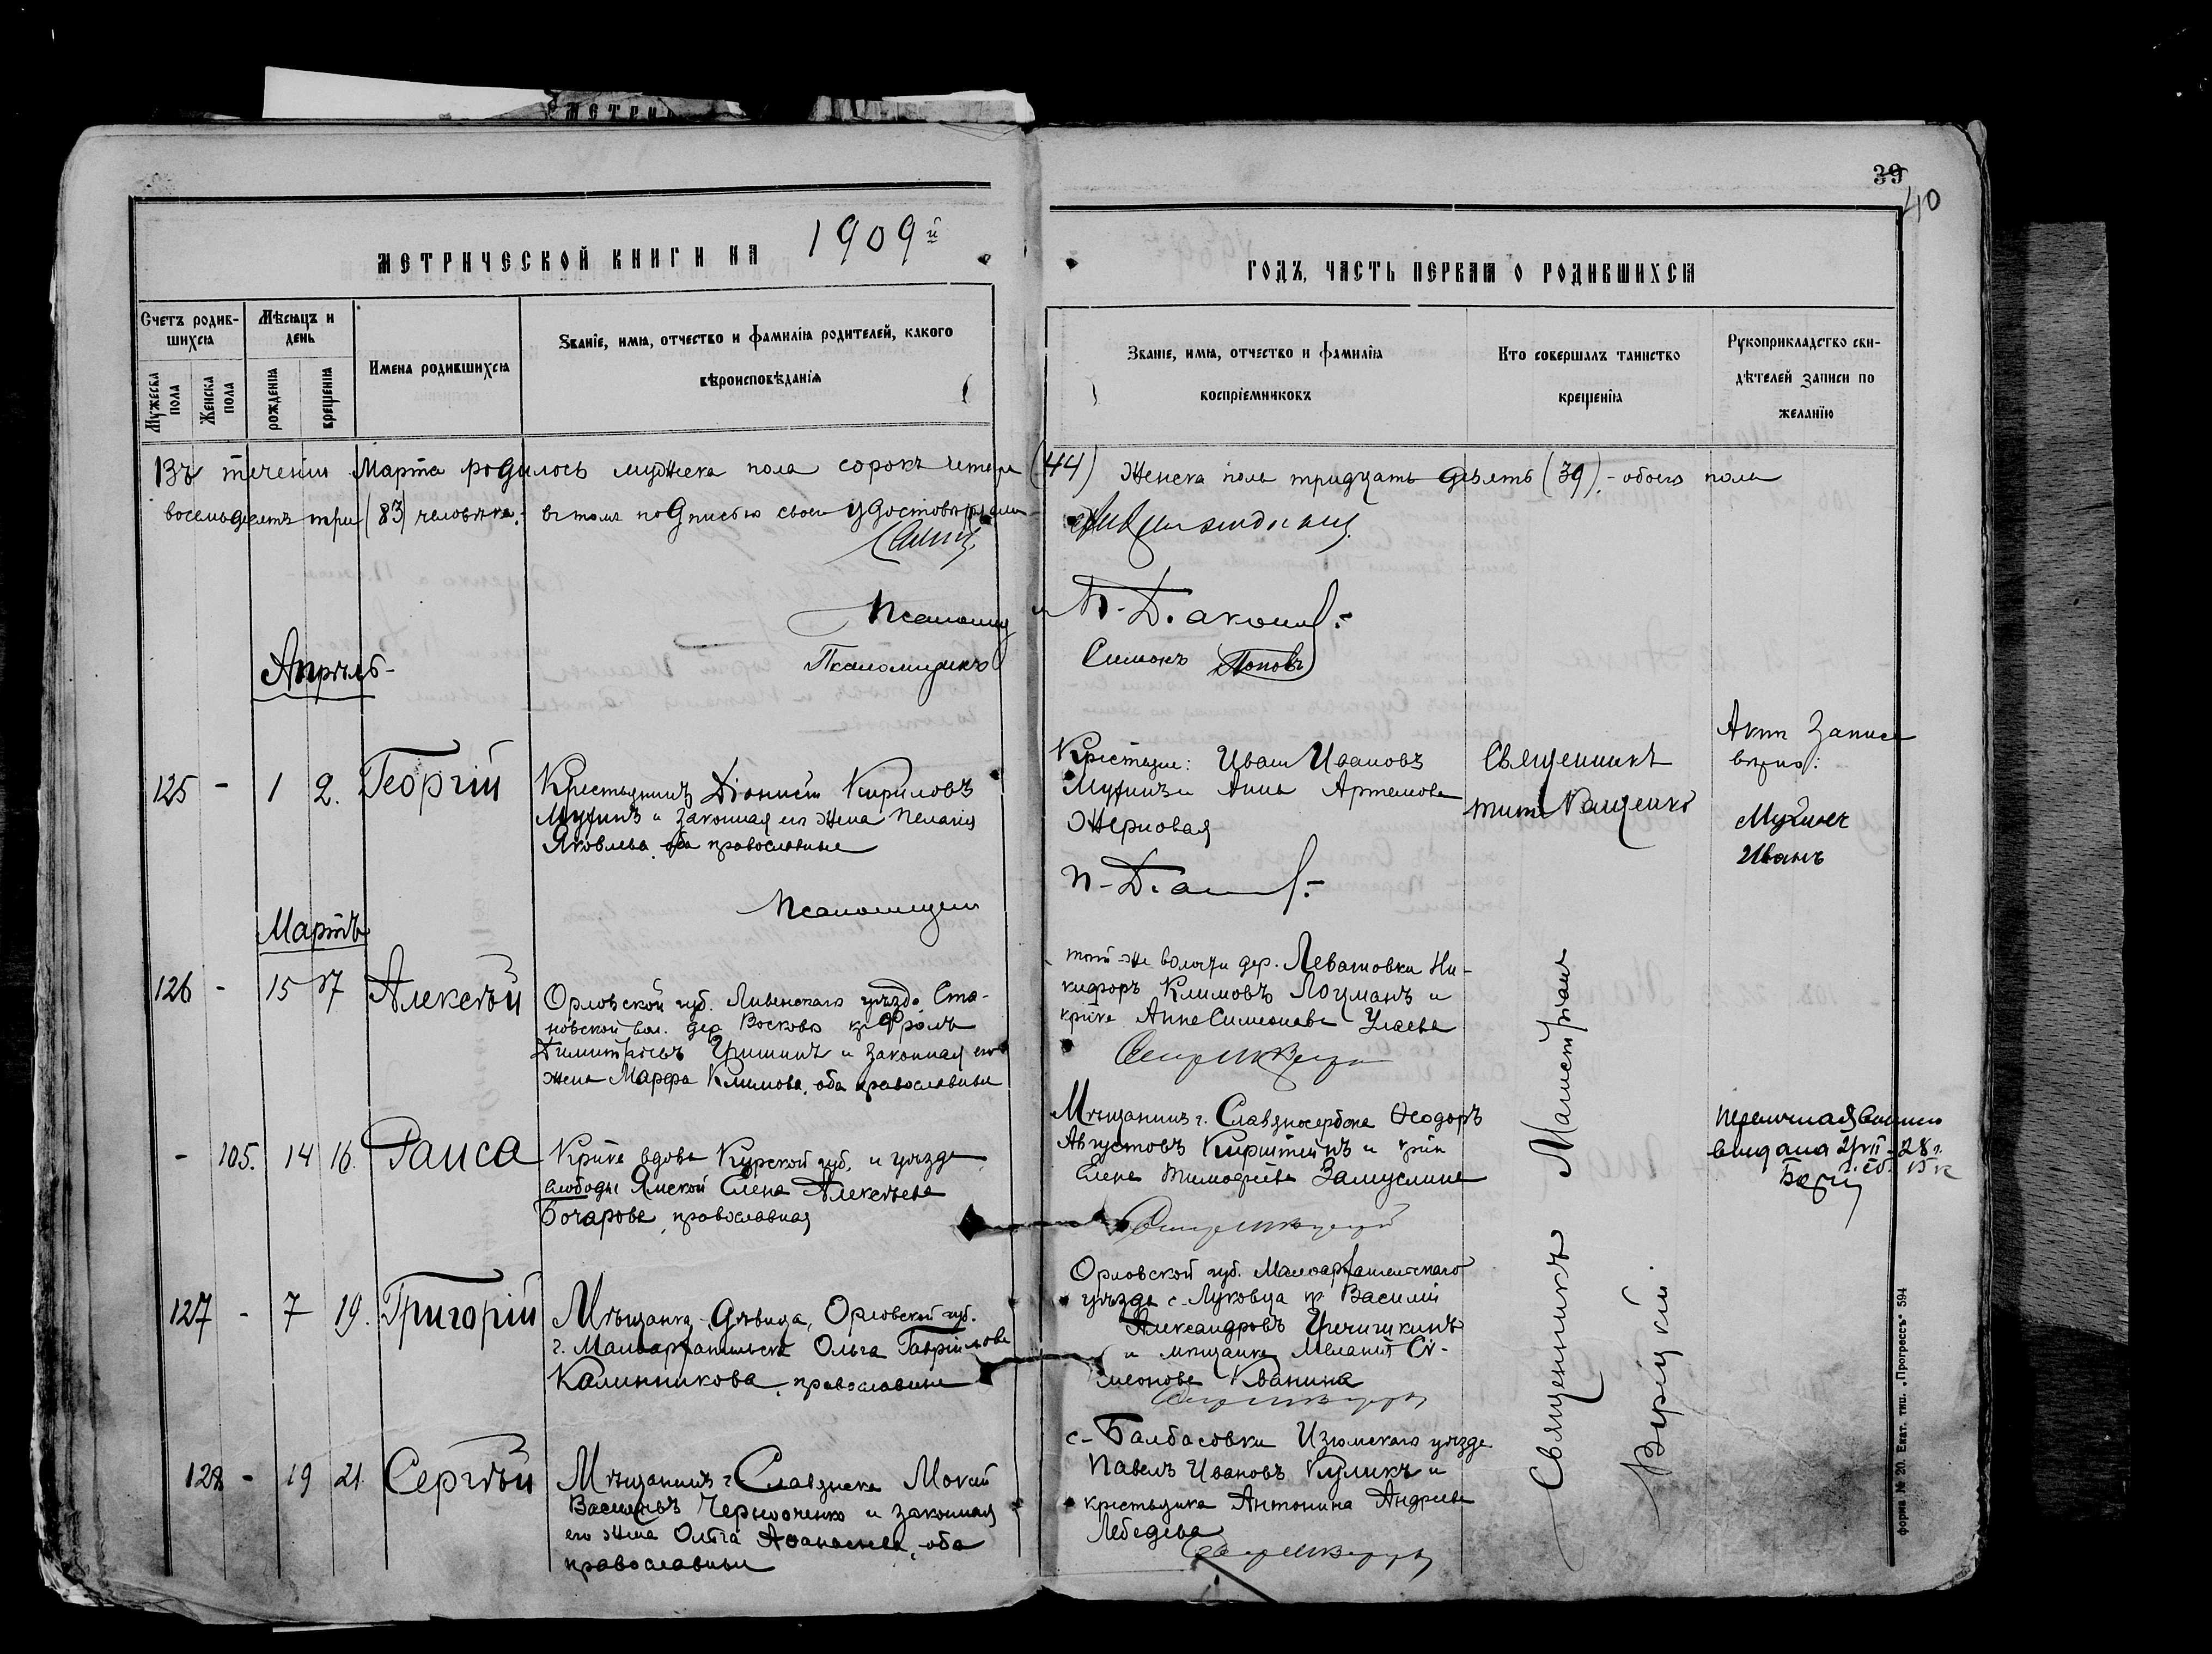 МЕТРИ
39
40
МЕТРИЧЕСКОЙ КНИГИ НА 1909й
ГОДЪ, ЧАСТЬ ПЕРВАЯ О РОДИВШИХСЯ
Счетъ родив-
шихся
Мужеска пола
Женска пола
Мѣсяцъ и
день
рожденія
крещенія
Имена родившихся
Званіе, имя, отчество и фамилія родителей, какого
вѣроисповѣданія
Званіе, имя, отчество и фамилія
воспріемниковъ
Кто совершалъ таинство
крещенія
Рукоприкладство сви-
дѣтелей записи по
желанію
Въ теченіи Марта родилось мужеска пола сорокъ четыре (44) женска пола тридцать девять (39) - обоего пола
восемьдесятъ три (83) человѣка, - въ томъ подписью своею удостовѣряемъ
Псаломщикъ
Псаломщикъ Симонъ Поповъ
Апрѣль
125 - 1 2. Георгій
Крестьянинъ Діонисій Кириловъ
Мухинъ и законная его жена Пелагія
Яковлева, оба православные
Крестьяне: Иванъ Ивановъ
Мухинъ и Анна Артемова
Жерновая
Священникъ
Титъ Кащенко
Актъ записи
вѣрно:
Мухинъ
Иванъ
Псаломщикъ
Мартъ
126 - 15 17 Алексѣй
Орловской губ. Ливенскаго уѣзда Ста-
новской вол. дер. Восково кр. Фролъ
Димитріевъ Гришинъ и законная его
жена Марфа Климова, оба православные
той-же волости дер. Левашовки Ни-
кифоръ Климовъ Лоцманъ и
кр-ка Анна Симеонова
- 105. 14 16. Раиса
Кр-ка вдова Курской губ. и уѣзда
слободы Ямской Елена Алексѣева
Бочарова, православная
Мѣщанинъ г. Славяносербска Ѳеодоръ
Августовъ Кирштейнъ и
Елена Тимофеева
выдана
127 - 7 19. Григорій
Мѣщанка-дѣвица, Орловской губ.
г. Малоархангельска Ольга Гавріилова
Калинникова, православная
Орловской губ. Малоархангельскаго
уѣзда с. Луковца кр. Василій
Александровъ
и мѣщанка Меланія Си-
меонова Кванина
128 - 19 21. Сергѣй
Мѣщанинъ г. Славянска Мокій
Васильевъ Черноченко и законная
его жена Ольга Аѳанасьева, оба
православные
с. Балбасовки Изюмскаго уѣзда
Павелъ Ивановъ Куликъ и
крестьянка Антонина Андреева
Лебедева
Священникъ
форма № 20. Екат. тип. „Прогрессъ" 594